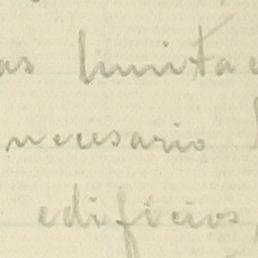 as limita
necesario
edificios,